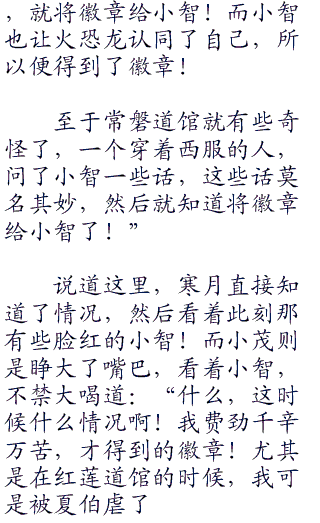 ，就将徽章给小智！而小智
也让火恐龙认同了自己，所
以便得到了徽章！
至于常磐道馆就有些奇
怪了，一个穿着西服的人，
问了小智一些话，这些话莫
名其妙，然后就知道将徽章
给小智了！”
说道这里，寒月直接知
道了情况，然后看着此刻那
有些脸红的小智！而小茂则
是睁大了嘴巴，看着小智，
不禁大喝道：“什么，这时
候什么情况啊！我费劲千辛
万苦，才得到的徽章！尤其
是在红莲道馆的时候，我可
是被夏伯虐了